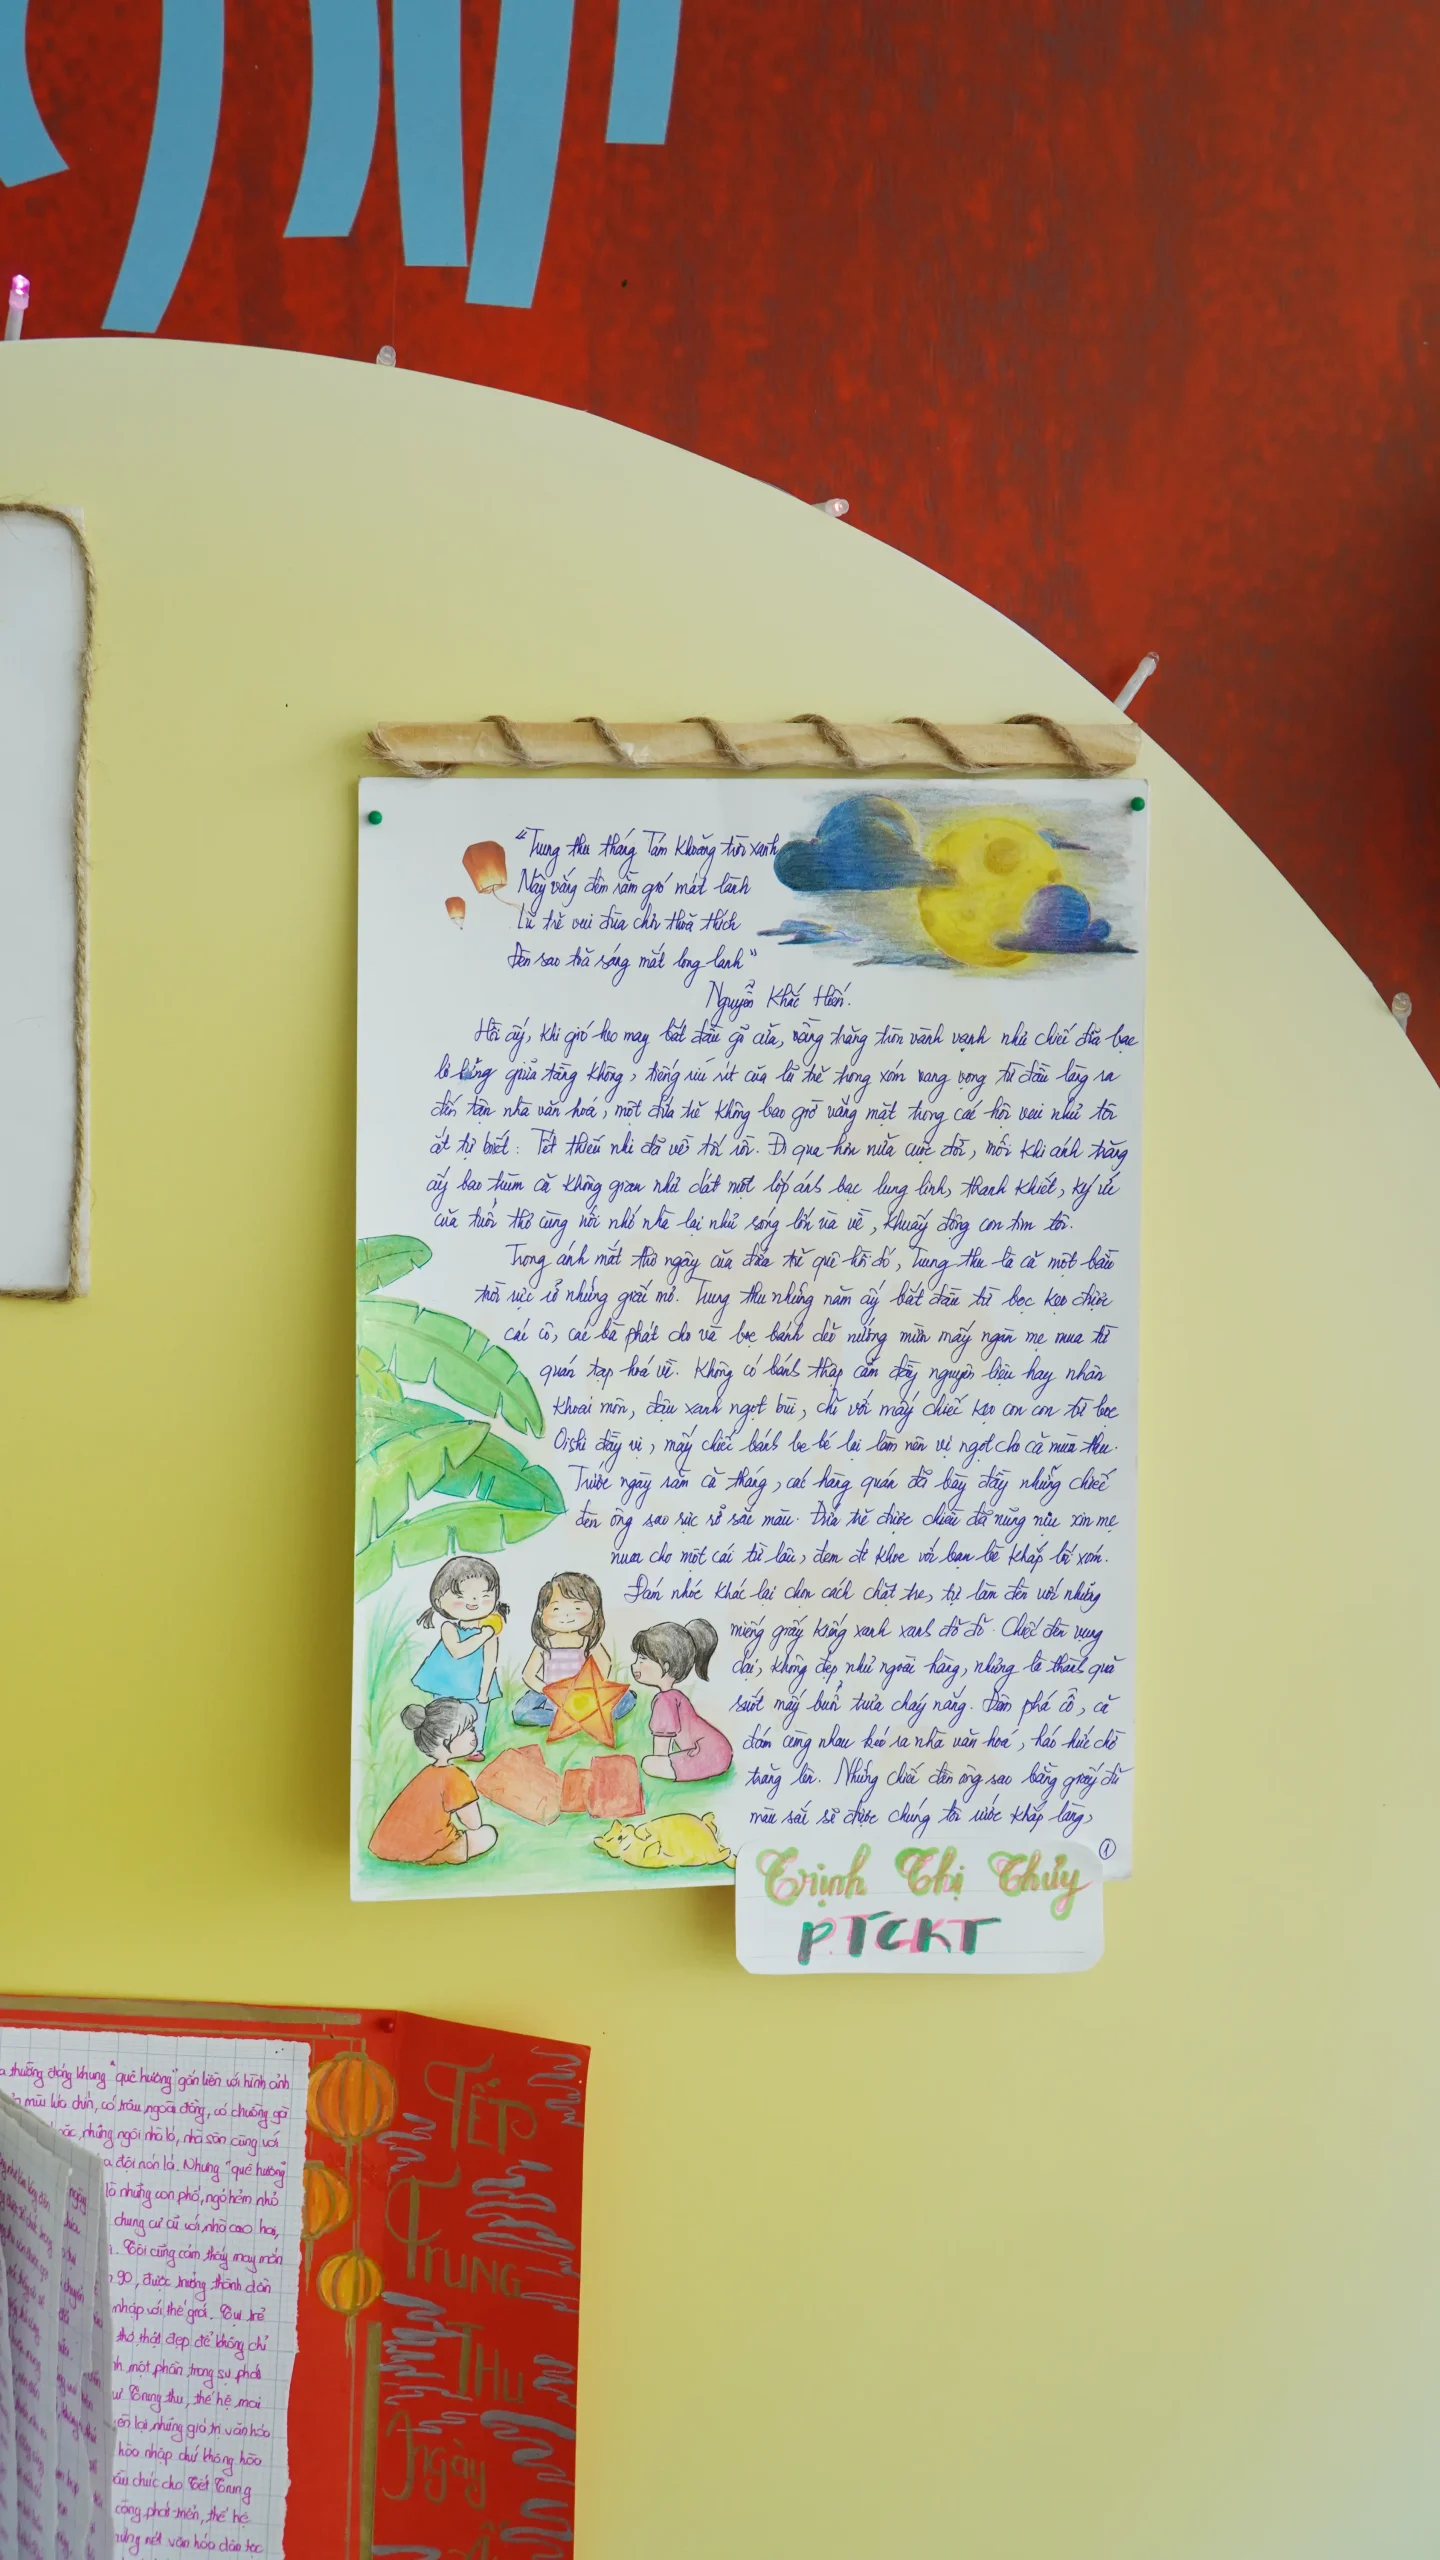 "Trung thu tháng Tám khoảng trời xanh
Này vầng đêm rằm gió mát lành
Lũ trẻ vui đùa chơi thoả thích
Đèn sao toả sáng mắt long lanh"
Nguyễn Khắc Hiến.
Hồi ấy, khi gió heo may bắt đầu gõ cửa, vầng trăng tròn vành vạnh như chiếc đĩa bạc
lơ lửng giữa tầng không, tiếng ríu rít của lũ trẻ trong xóm vang vọng từ đầu làng ra
đến tận nhà văn hoá, một đứa trẻ không bao giờ vắng mặt trong các hội vui như tôi
ắt tự biết: Tết thiếu nhi đã về tới rồi. Đi qua hơn nửa cuộc đời, mỗi khi ánh trăng
ấy bao trùm cả không gian như dát một lớp ánh bạc lung linh, thanh khiết, ký ức
của tuổi thơ cùng nỗi nhớ nhà lại như sóng lớn ùa về, khuấy động con tim tôi.
Trong ánh mắt thơ ngây của đứa trẻ quê hồi đó, Trung thu là cả một bầu
trời rực rỡ những giấc mơ. Trung thu những năm ấy bắt đầu từ bọc kẹo được
các cô, các bà phát cho và bọc bánh dẻo nướng mười mấy ngàn mẹ mua từ
quán tạp hoá về. Không có bánh thập cẩm đầy nguyên liệu hay nhân
khoai môn, đậu xanh ngọt bùi, chỉ với mấy chiếc kẹo con con từ bọc
Oishi đầy vị, mấy chiếc bánh be bé lại làm nên vị ngọt cho cả mùa thu.
Trước ngày rằm cả tháng, các hàng quán đã bày đầy những chiếc
đèn ông sao rực rỡ sắc màu. Đứa trẻ được chiều đã nũng nịu xin mẹ
mua cho một cái từ lâu, đem đi khoe với bạn bè khắp lối xóm.
Đám nhóc khác lại chọn cách chặt tre, tự làm đèn với những
miếng giấy kiếng xanh xanh đỏ đỏ. Chiếc đèn vụng
dại, không đẹp như ngoài hàng, nhưng là thành quả
suốt mấy buổi trưa cháy nắng. Đêm phá cỗ, cả
đám cùng nhau kéo ra nhà văn hoá, háo hức chờ
trăng lên. Những chiếc đèn ông sao bằng giấy đủ
màu sắc sẽ được chúng tôi rước khắp làng,
1
Trịnh Thị Thủy
PTCKT
thường đóng khung "quê hương" gắn liền với hình ảnh
mùi lúa chín, có trâu ngoài đồng, có chuồng gà
những ngôi nhà lá, nhà sàn cùng với
đội nón lá. Nhưng "quê hương"
là những con phố, ngõ hẻm nhỏ
chung cư cũ với nhà cao
Tôi cũng cảm thấy may mắn
90, được trưởng thành dần
nhập với thế giới.
thật đẹp để không chỉ
một phần trong sự phát
Trung thu, thế hệ mai
lại những giá trị văn hóa
hòa nhập chứ không hòa
chúc cho Tết Trung
càng phát triển, thế hệ
nét văn hóa dân tộc
TẾT
TRUNG
THU
Ngày